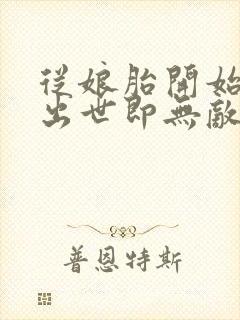 從娘胎開始
出世即無敵
普恩特斯